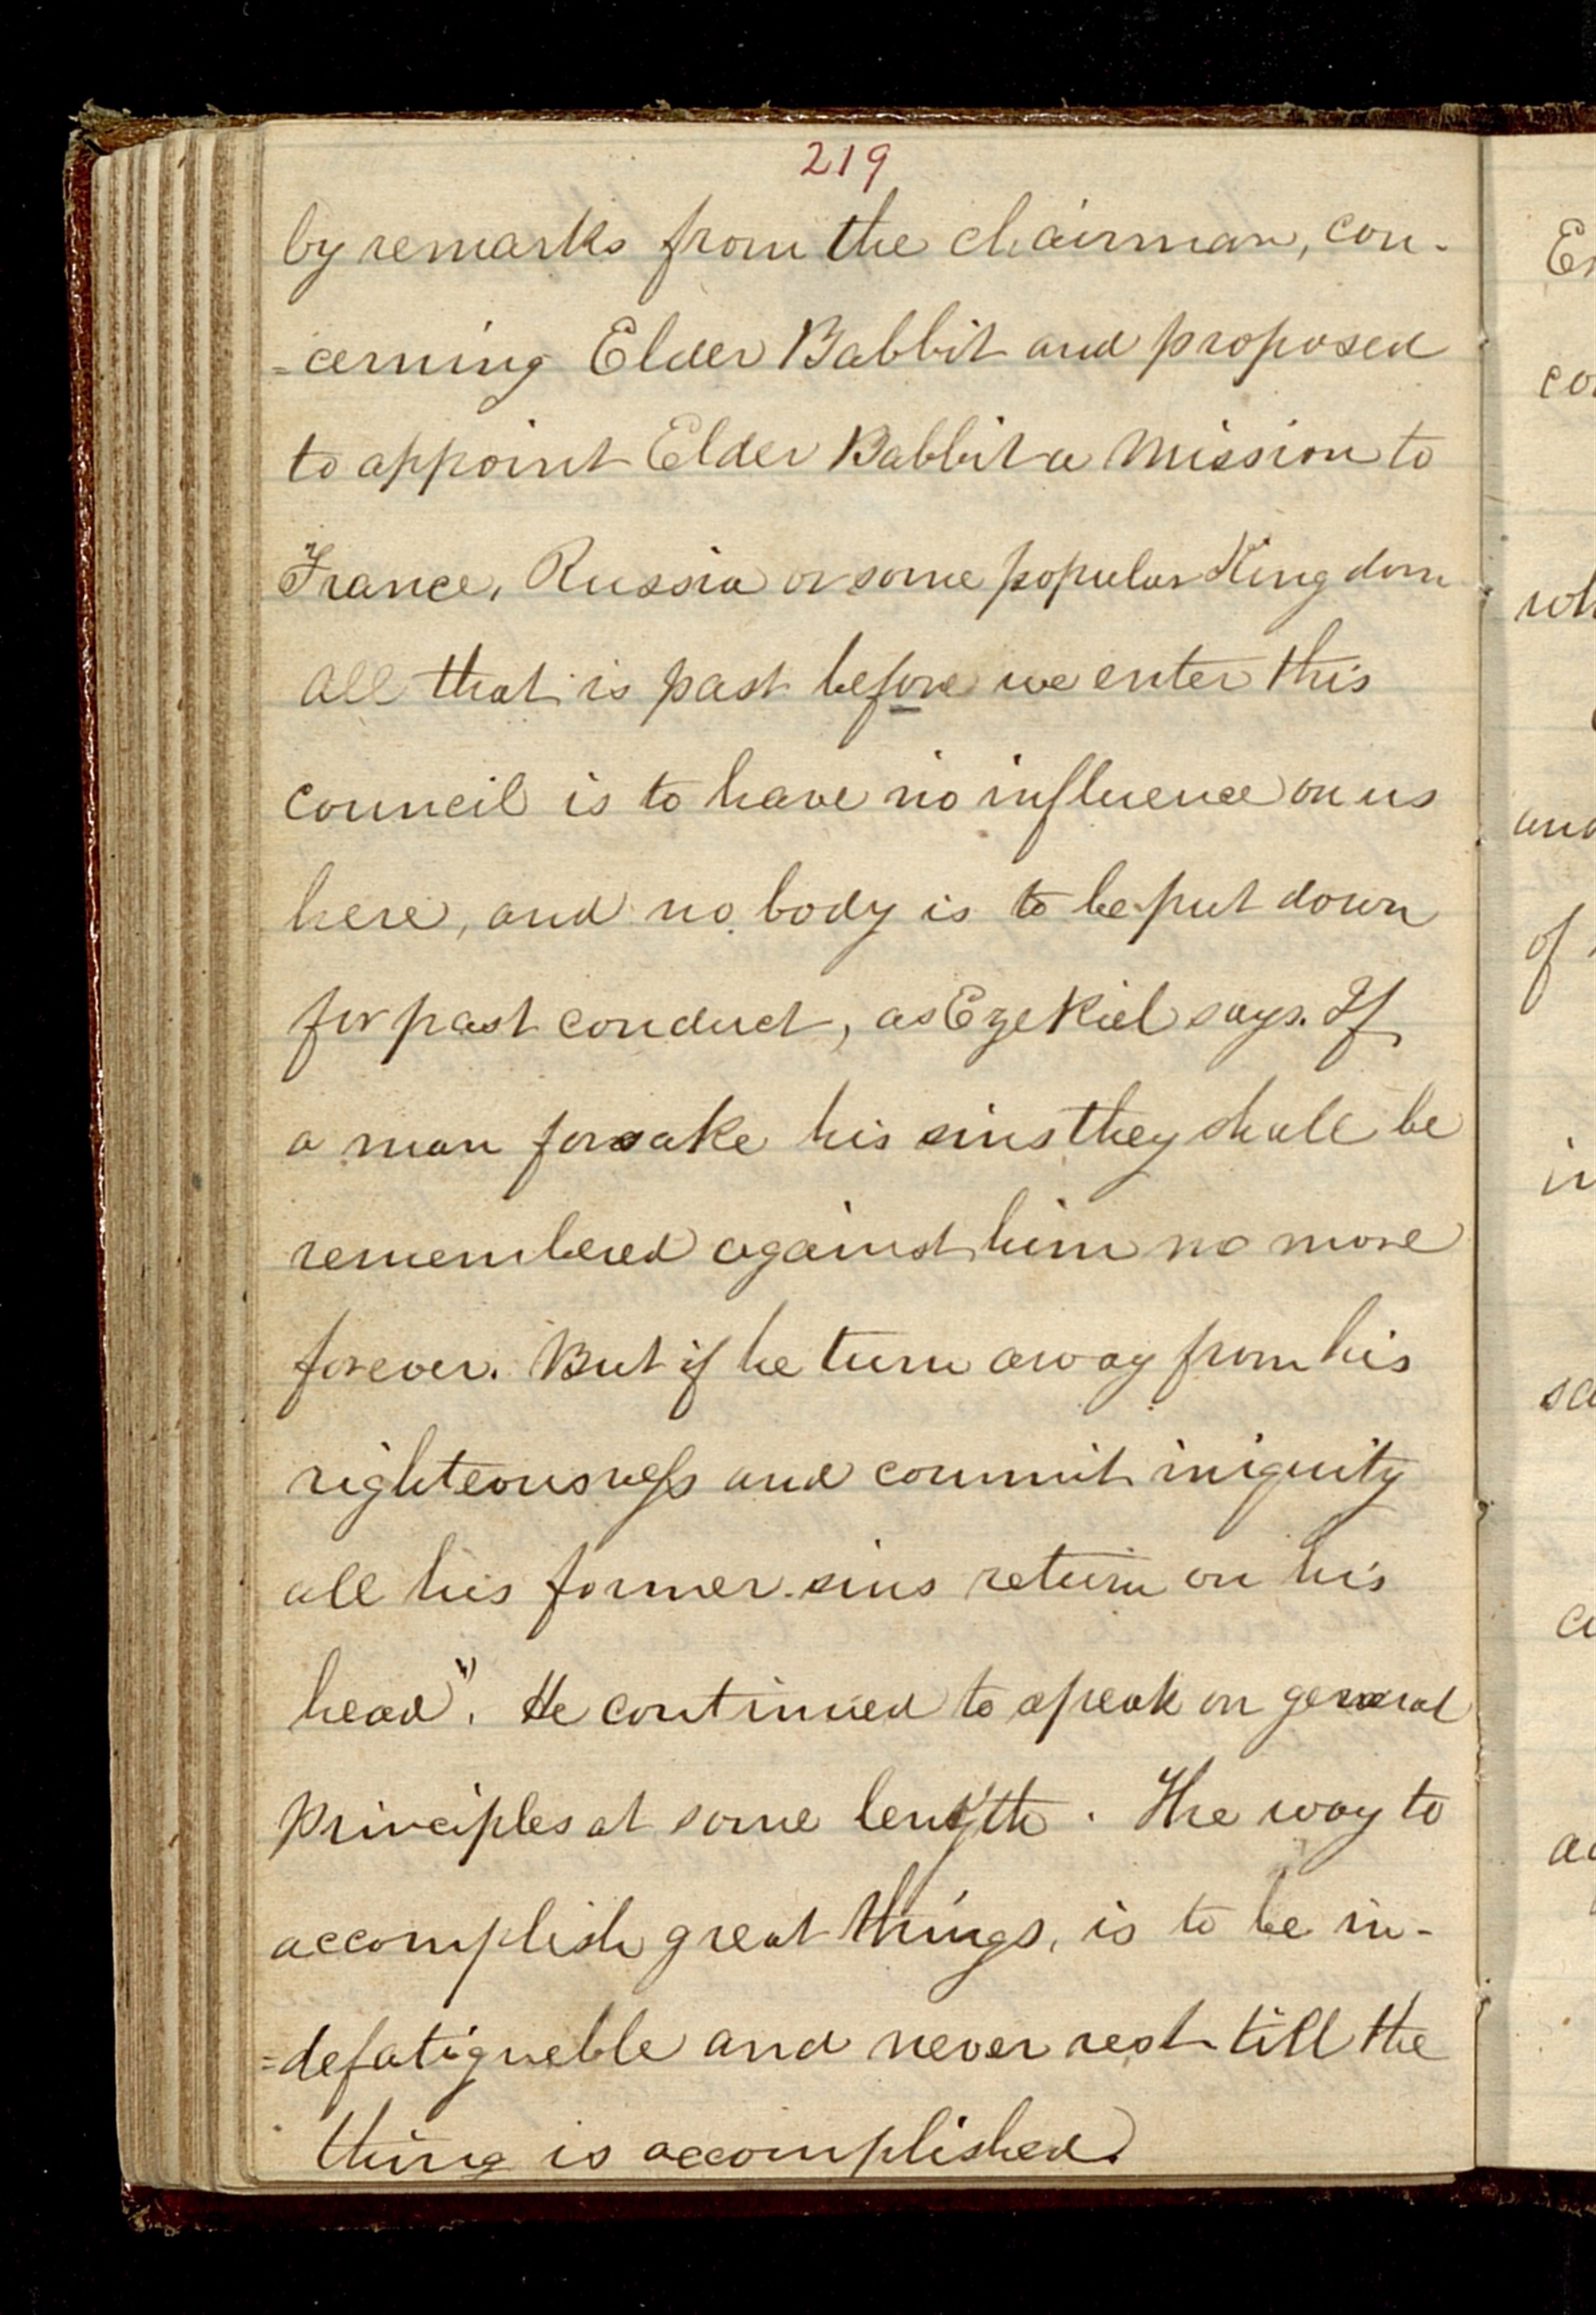 219
by remarks from the chairman, con-
=cerning Elder Babbit and proposed
to appoint Elder Babbit a Mission to
France, Russia or some popular Kingdom
all that is past before we enter this
council is to have no influence on us
here, and no body is to be put down
for past conduct, as Ezekiel says. If
a man forsake his sins they shall be
remembered against him no more
forever. But if he turn away from his
righteousness and commit iniquity
all his former sins return on his
head". He continued to speak on general
principles at some length. The way to
accomplish great things, is to be in-
=defatigueble and never rest till the
thing is accomplished.
Er
co
wh
and
of
in
sa
a
ac